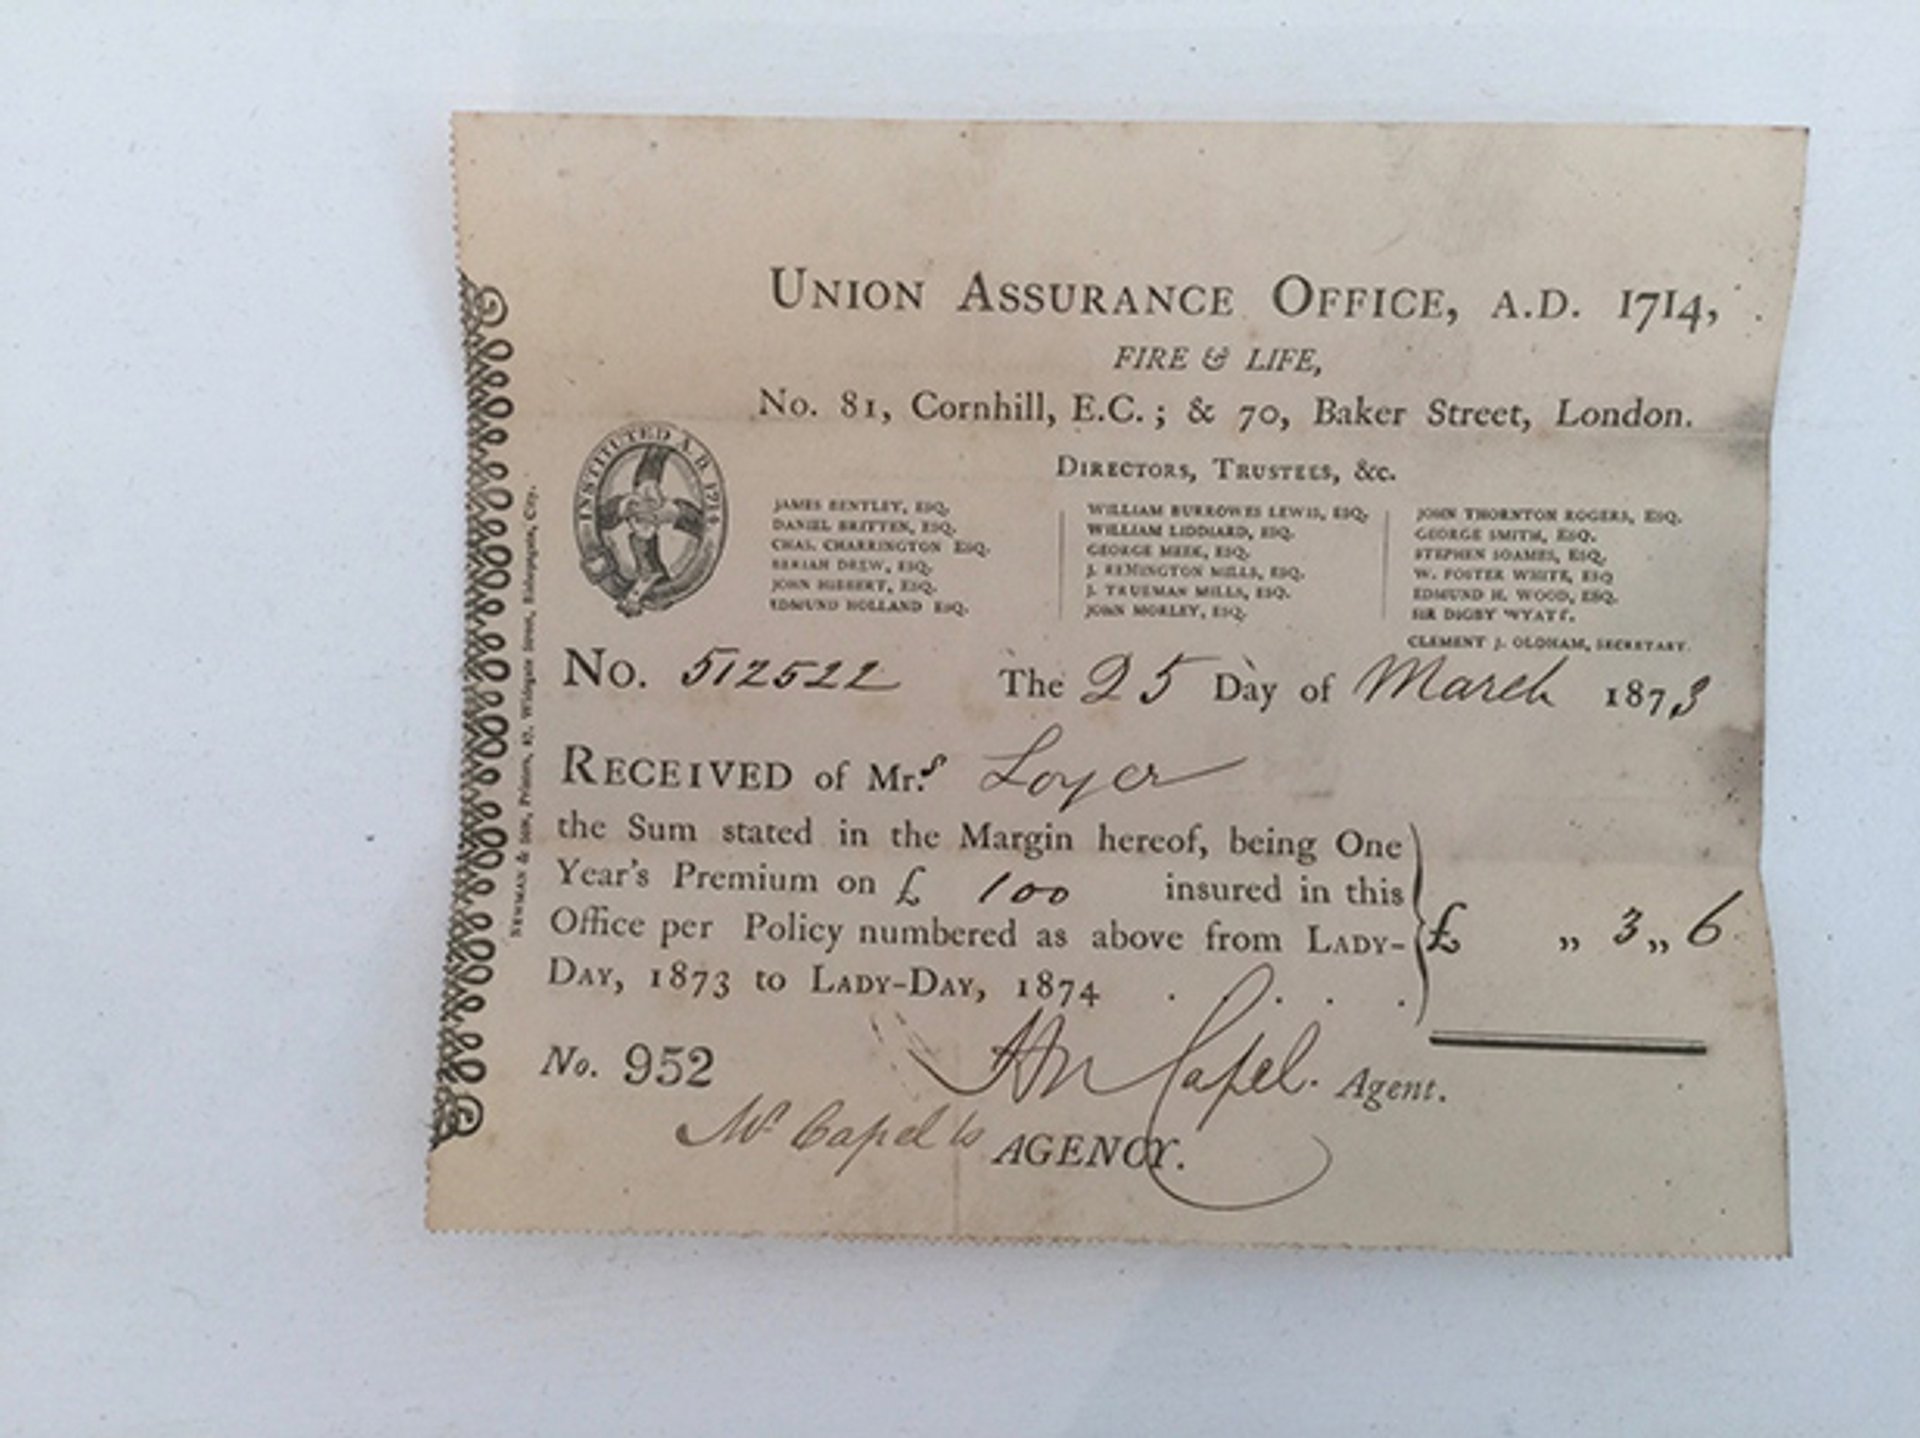 UNION ASSURANCE OFFICE, A.D. 1714,
FIRE & LIFE,
No. 81, Cornhill, E.C.; & 70, Baker Street, London.
INSTITUTED A.D. 1714
DIRECTORS, TRUSTEES, &c.
JAMES BENTLEY, ESQ.
DANIEL BRITTEN, ESQ.
CHAS. CHARRINGTON ESQ.
BERIAH DREW, ESQ.
JOHN HIBBERT, ESQ.
EDMUND HOLLAND ESQ.
WILLIAM BURROWES LEWIS, ESQ.
WILLIAM LIDDIARD, ESQ.
GEORGE MEEK, ESQ.
J. REMINGTON MILLS, ESQ.
J. TRUEMAN MILLS, ESQ.
JOHN MORLEY, ESQ.
JOHN THORNTON ROGERS, ESQ.
GEORGE SMITH, ESQ.
STEPHEN SOAMES, ESQ.
W. FOSTER WHITE, ESQ
EDMUND H. WOOD, ESQ.
SIR DIGBY WYATT.
CLEMENT J. OLDHAM, SECRETARY.
No. 512522 The 25 Day of March 1873
RECEIVED of Mr.s Loyer
the Sum stated in the Margin hereof, being One
Year's Premium on £ 100 insured in this
Office per Policy numbered as above from LADY-
DAY, 1873 to LADY-DAY, 1874 . . . .
£ „ 3 „ 6
No. 952 Capel. Agent.
Mr Capel's AGENCY.
NEWMAN & SON, Printers, 27, Widegate Street, Bishopsgate, City.